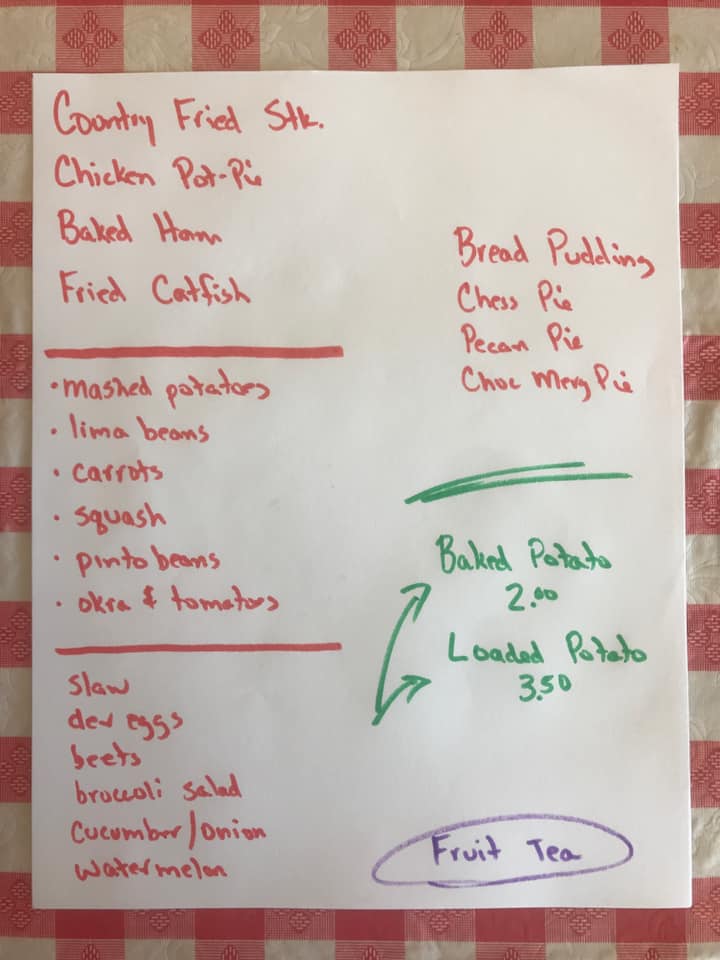 Country Fried Stk.
Chicken Pot-Pie
Baked Ham
Fried Catfish
• mashed potatoes
• lima beans
• carrots
• squash
• pinto beans
• okra & tomatoes
slaw
dev eggs
beets
broccoli salad
cucumber/onion
watermelon
Bread Pudding
Chess Pie
Pecan Pie
Choc Merg Pie
Baked Potato
2.00
Loaded Potato
3.50
Fruit Tea